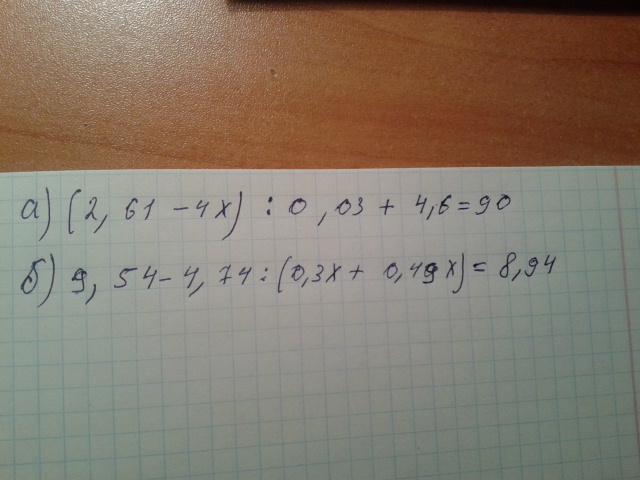 а) (2,61 - 4х) : 0,03 + 4,6 = 90
б) 9,54 - 4,74 : (0,3х + 0,49х) = 8,94